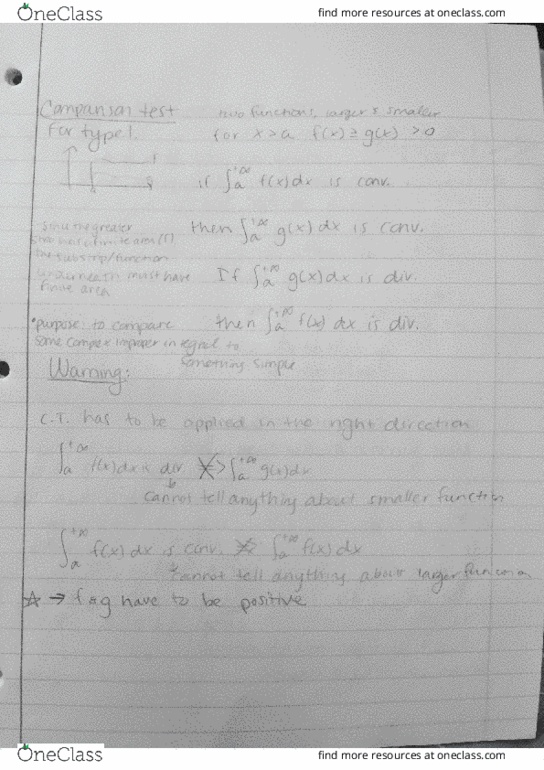 OneClass
find more resources at oneclass.com
Comparison test
two functions, larger & smaller
For type 1.
for x>a f(x) ≥ g(x) >0
if ∫a+∞ f(x)dx is conv.
then ∫a+∞ g(x) dx is conv.
since the greater
finite area (f)
the substrip/function
underneath must have
finite area
If ∫a+∞ g(x)dx is div.
then ∫a+∞ f(x) dx is div.
*purpose: to compare
some complex improper integral to
something simple
Warning:
C.T. has to be applied in the right direction
∫a+∞ f(x)dx is div. ≠> ∫a+∞ g(x)dx
cannot tell anything about smaller function
∫a+∞ f(x) dx is conv. ≠> ∫a+∞ f(x) dx
*cannot tell anything about larger function
☆ → f & g have to be positive
OneClass
find more resources at oneclass.com